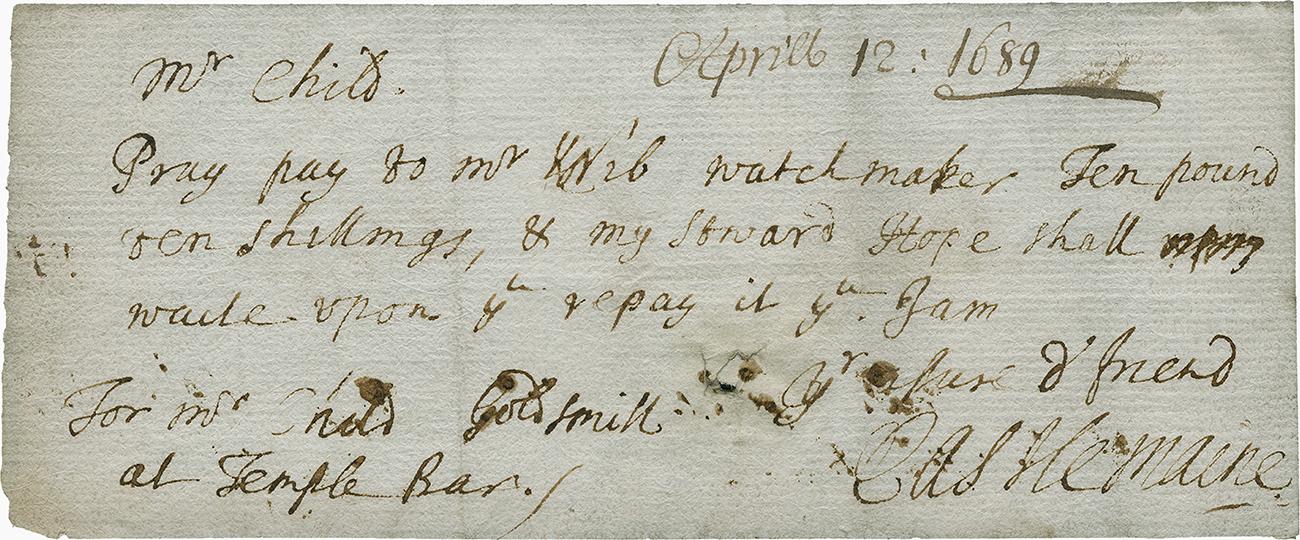 Mr Child. Aprill 12: 1689
Pray pay to mr Knib watchmaker Ten pound
ten shillings, & my Steward Hope shall
waite upon yu & repay it yu. I am
Yr assure d friend
For mr Child Goldsmith
at Temple Bar.
Castlemaine